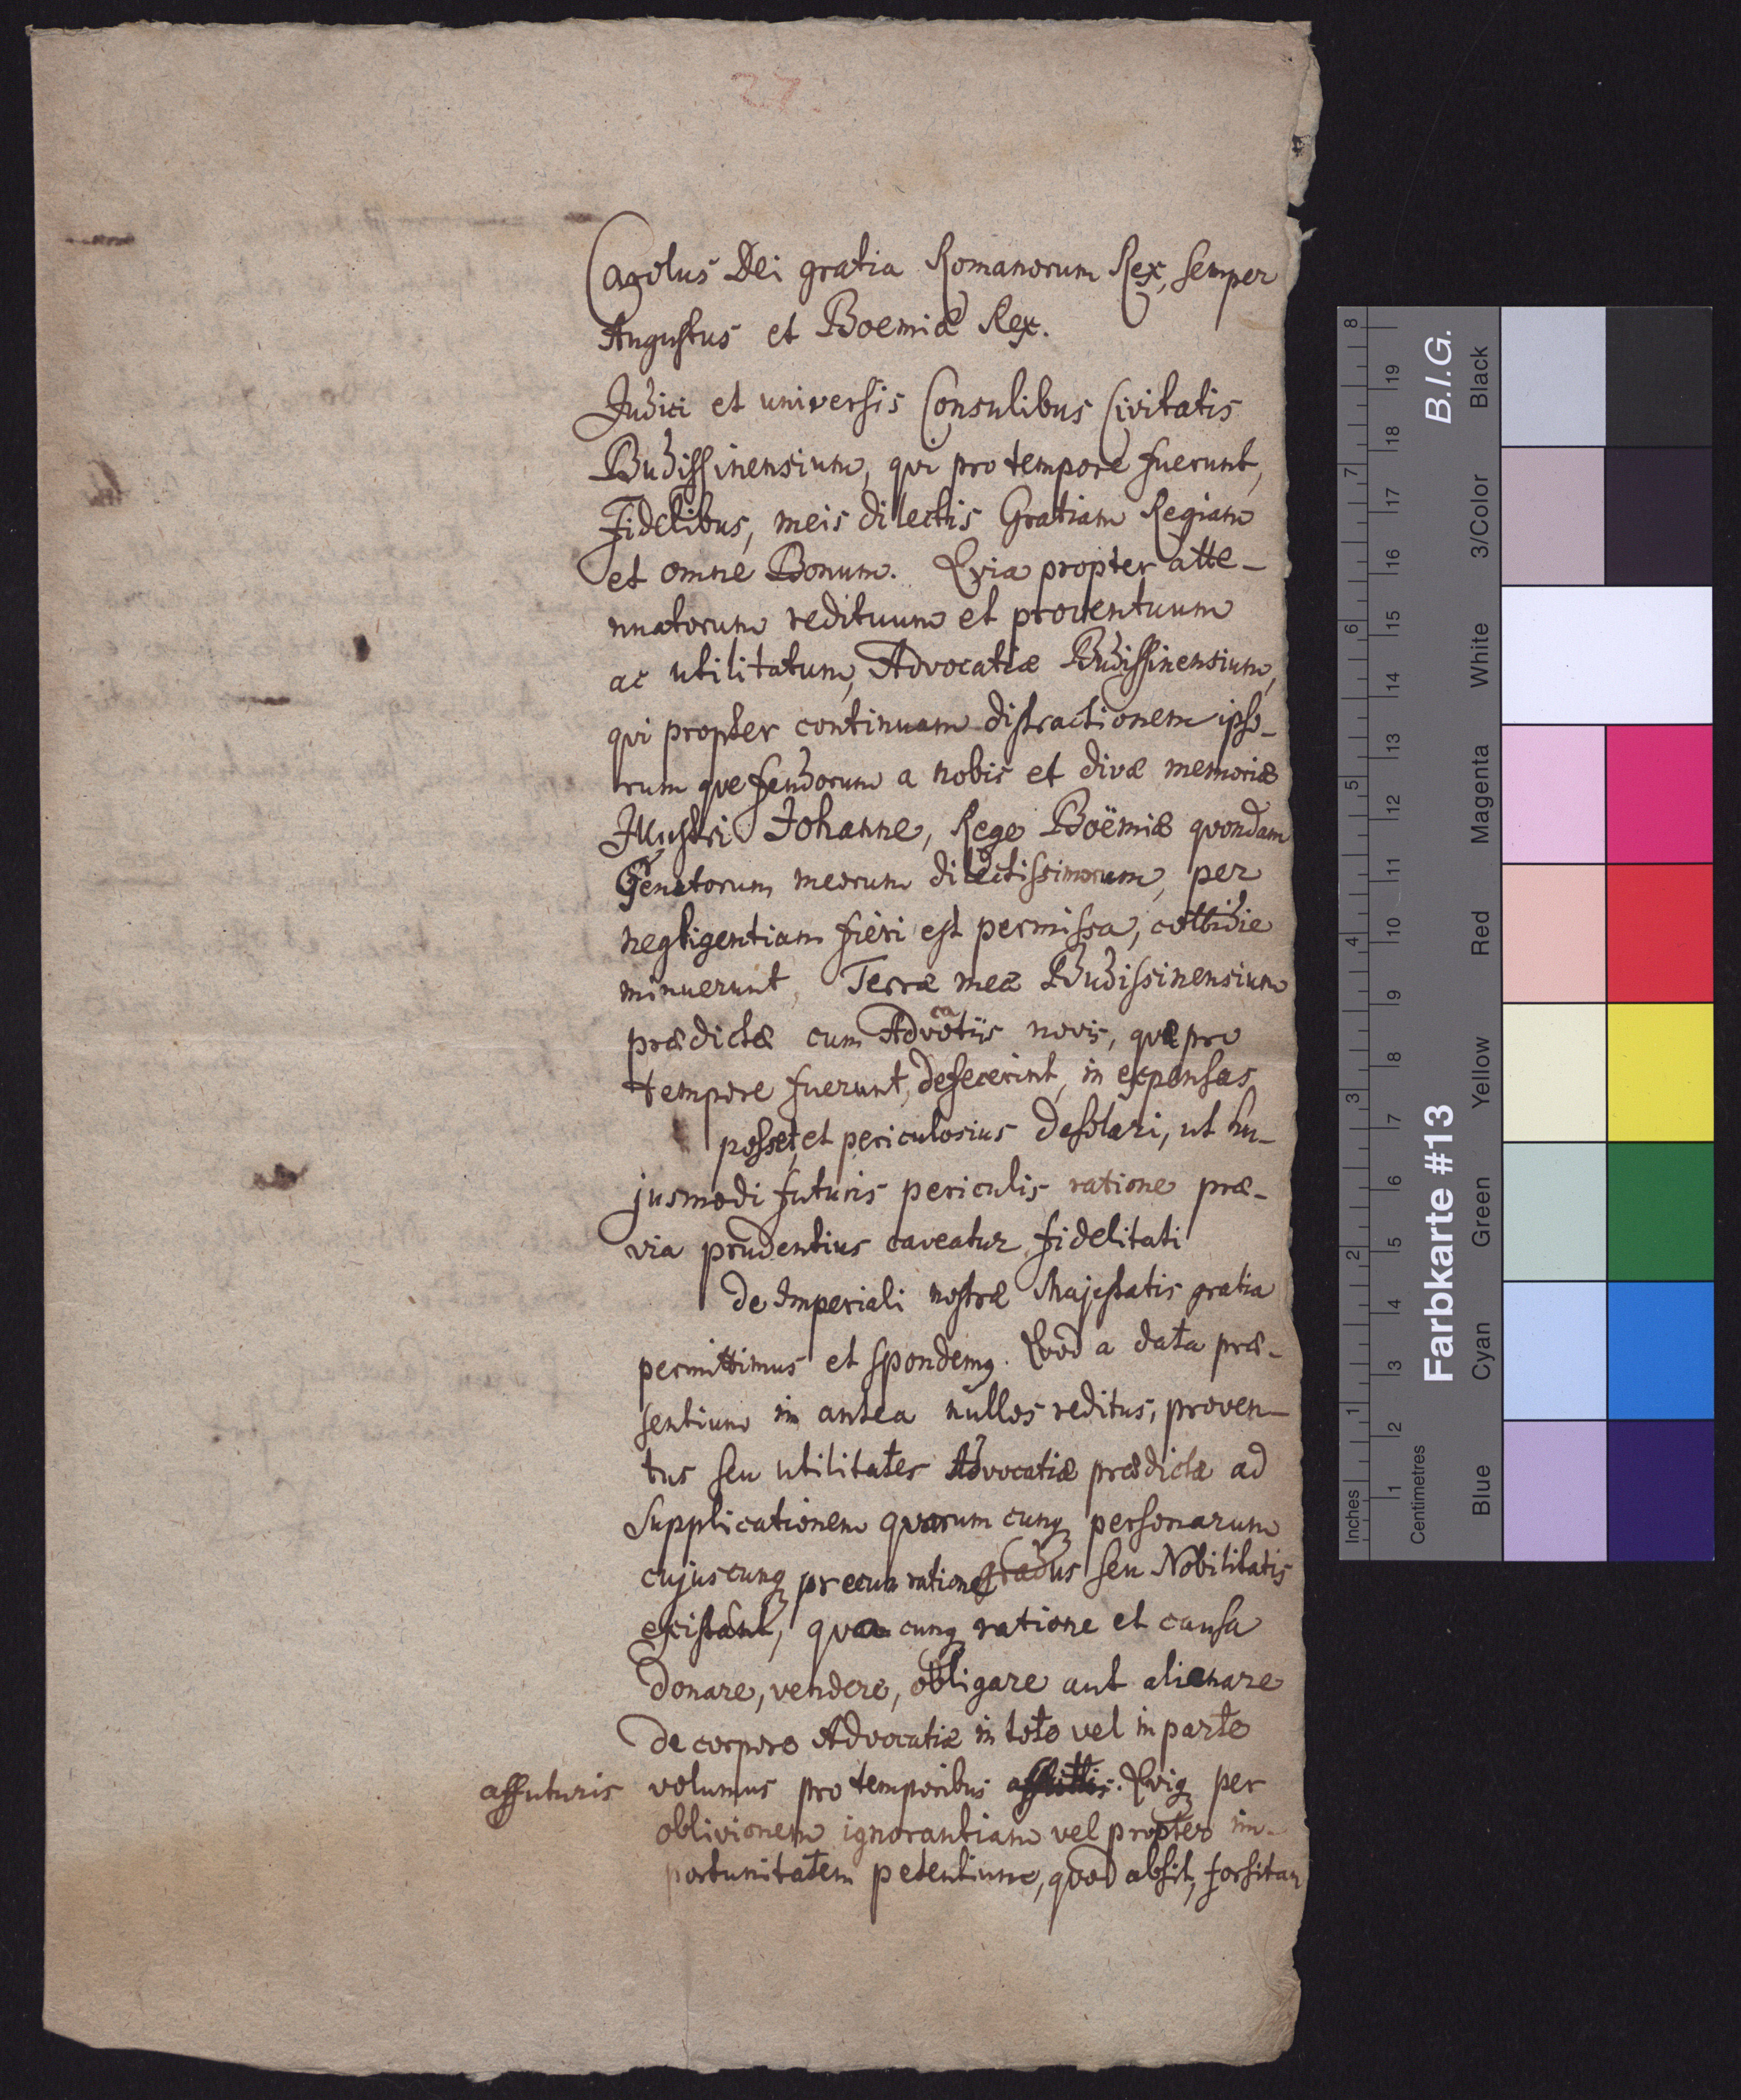 27.
Carolus Dei gratia Romanorum Rex, semper
Augustus et Boemiæ Rex.
Judici et universis Consulibus Civitatis
Budissinensium, qui pro tempore fuerunt,
Fidelibus, meis dilectis Gratiam Regiam
et omne Bonum. Qvia propter atte-
nuatorum redituum et prouentuum
ac utilitatum, Advocatiæ Budissinensium,
qui propter continuam distractionem ipso-
rum que feudorum a nobis et divæ memoriæ
Illustri Johanne, Rege Boëmiæ qvondam
Genetorum meorum dilectissimorum, per
negligentiam fieri est permissa, cottidie
minuerunt, Terræ meæ Budissinensium
prædictæ cum Advocatiis novis, quæ pro
tempore fuerunt, defecerint, in expensas
posset, et periculosius desolari, ut hu-
jusmodi futuris periculis ratione præ-
via prudentius caveatur fidelitati
de Imperiali nostræ Majestatis gratia
permittimus et spondemq. Qvod a data præ-
sentium in antea nullos reditus, proven-
tus seu utilitates Advocatiæ prædictæ ad
supplicationem qvorum cunq personarum
cujuscunq precum ratione gradus seu Nobilitatis
existant, qva cunq ratione et causa
donare, vendere, obligare aut alienare
de corpore Advocatiæ in toto vel in parte
affuturis volumus pro temporibus. Qviq per
oblivionem ignorantiam vel propter im-
portunitatem petentium, qvod absit, forsitan
B.I.G.
Farbkarte #13
Inches 1 2 3 4 5 6 7 8
Centimetres 1 2 3 4 5 6 7 8 9 10 11 12 13 14 15 16 17 18 19
Blue Cyan Green Yellow Red Magenta White 3/Color Black